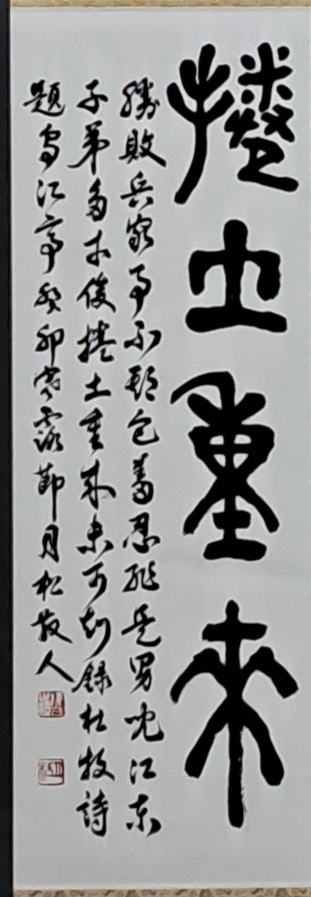 捲土重来
勝敗兵家事不期包羞忍恥是男児江東
子弟多才俊捲土重来未可知録杜牧詩
題烏江亭癸卯寒露節月松散人